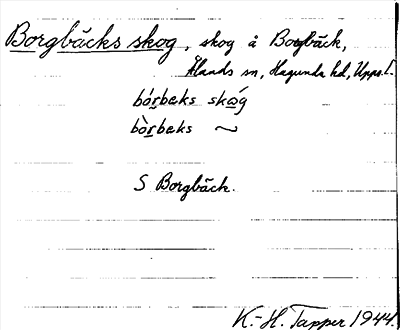 Borgbäcks skog, skog å Borgbäck,
Ålands sn, Hagunda hd, Upps. l.
bórbeks skóg
bòrbeks ~
S Borgbäck.
K.-H. Tapper 1944.